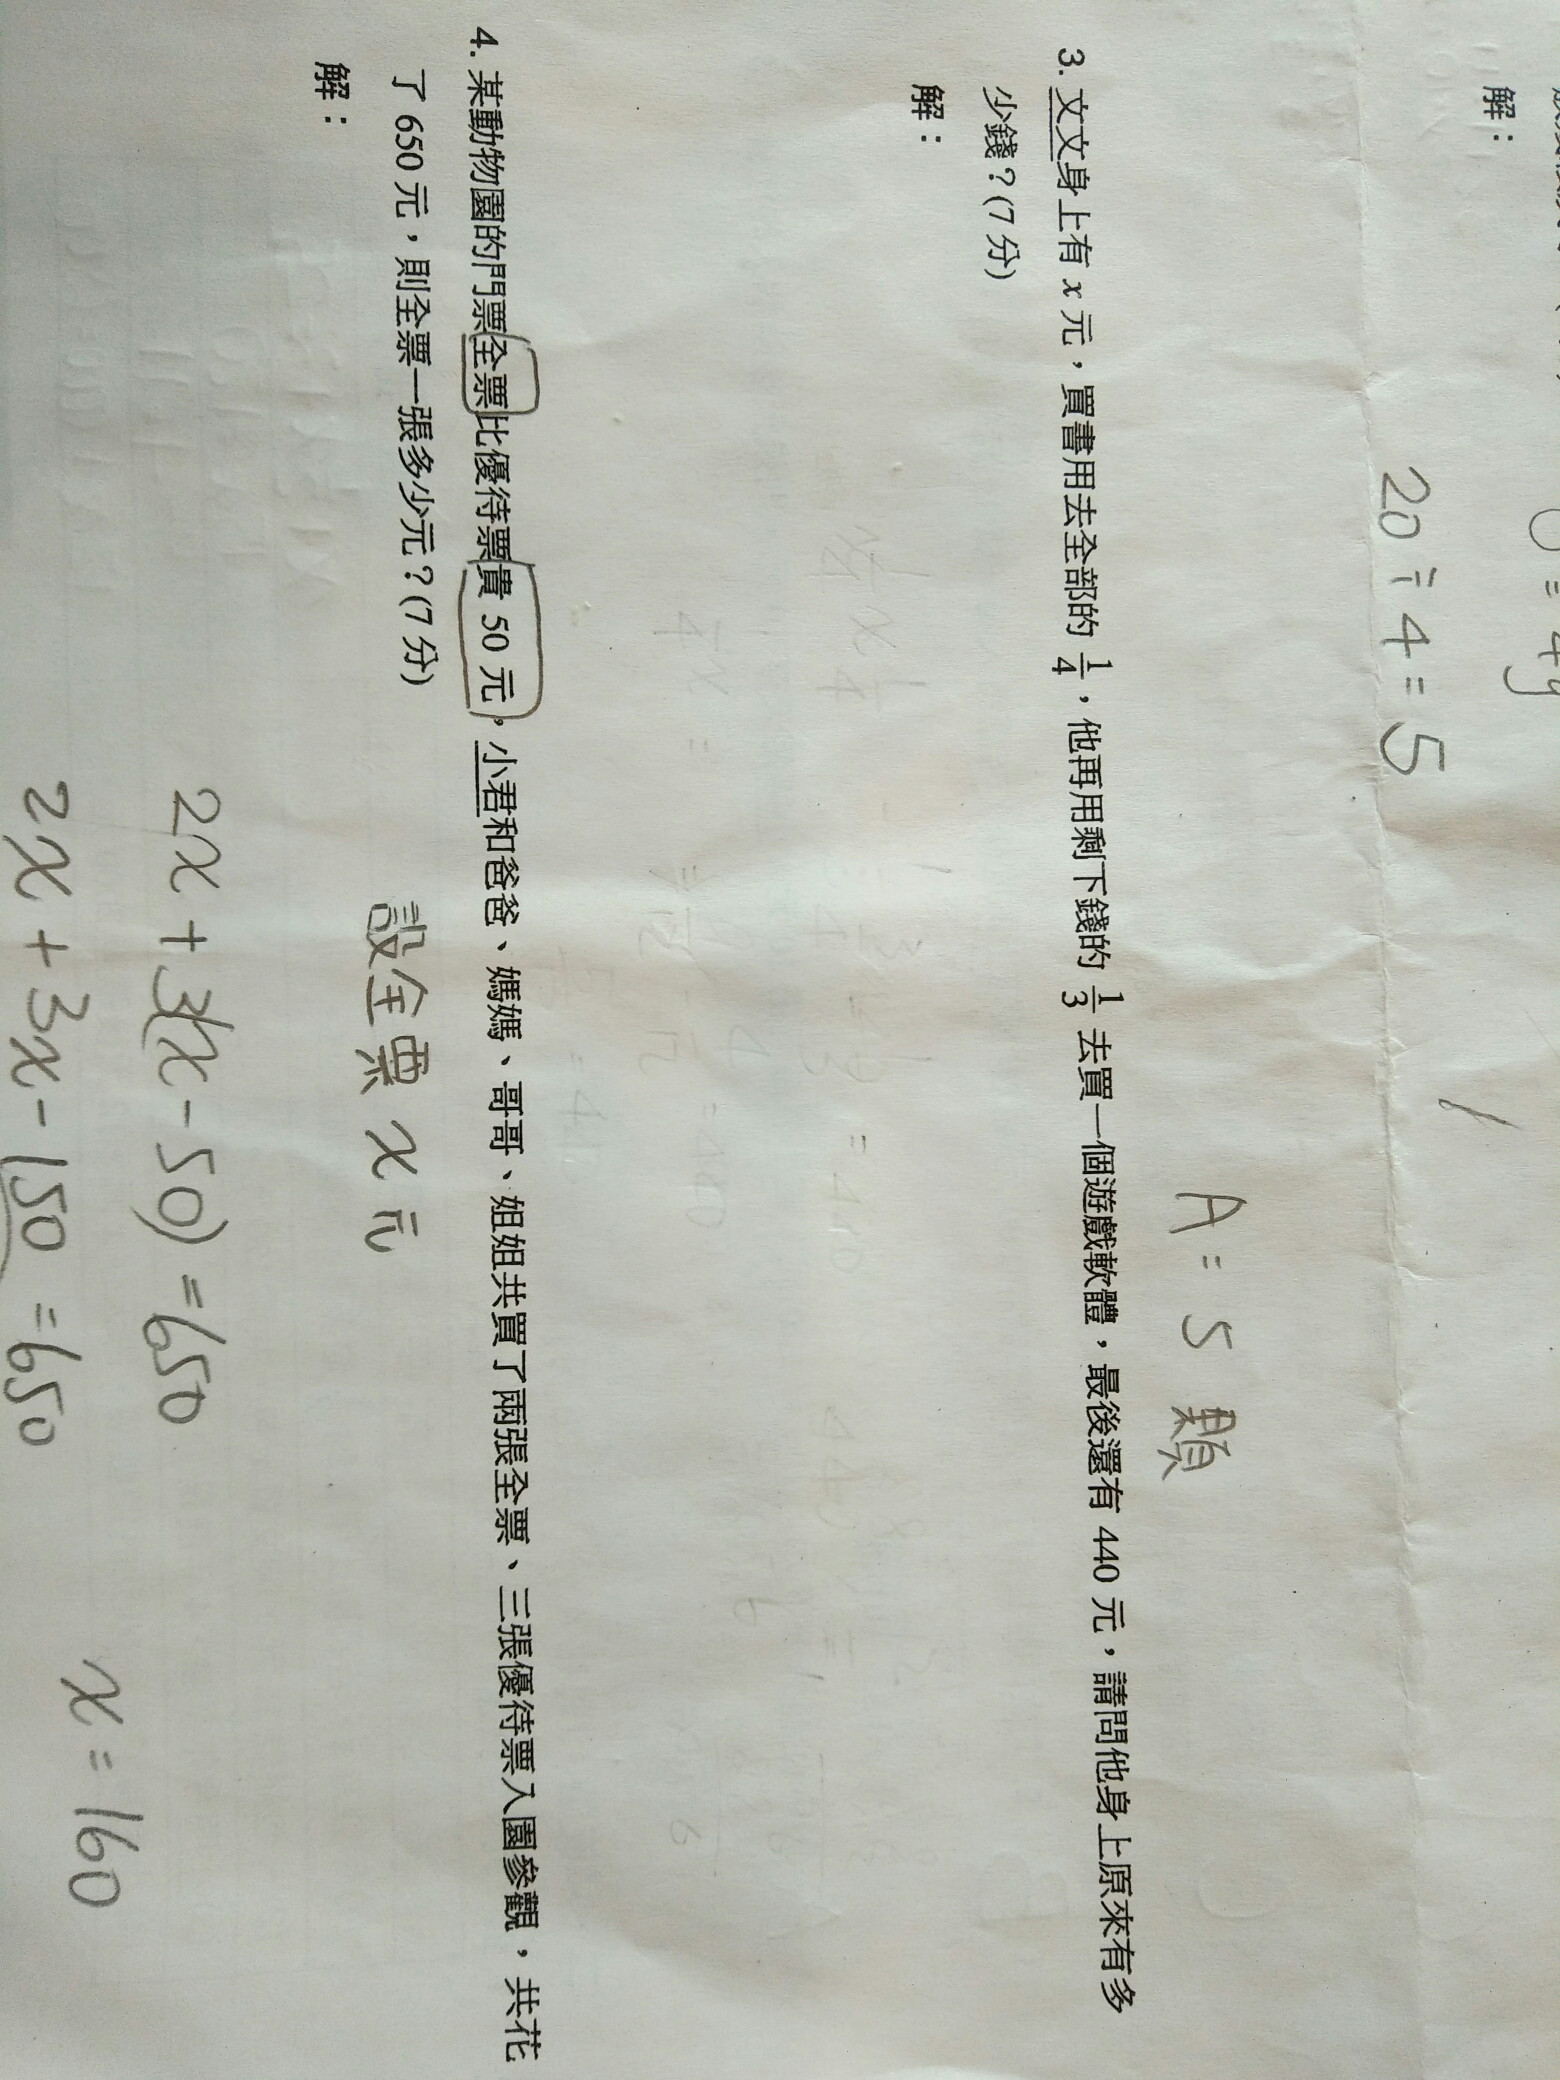 解：
20÷4=5
A=5 顆
3. 文文身上有 x 元，買書用去全部的 1/4，他再用剩下錢的 1/3 去買一個遊戲軟體，最後還有 440 元，請問他身上原來有多
少錢？(7 分)
解：
4. 某動物園的門票全票比優待票貴 50 元，小君和爸爸、媽媽、哥哥、姐姐共買了兩張全票、三張優待票入園參觀，共花
了 650 元，則全票一張多少元？(7 分)
解：
設全票 x 元
2x+3(x-50)=650
2x+3x-150=650
x=160